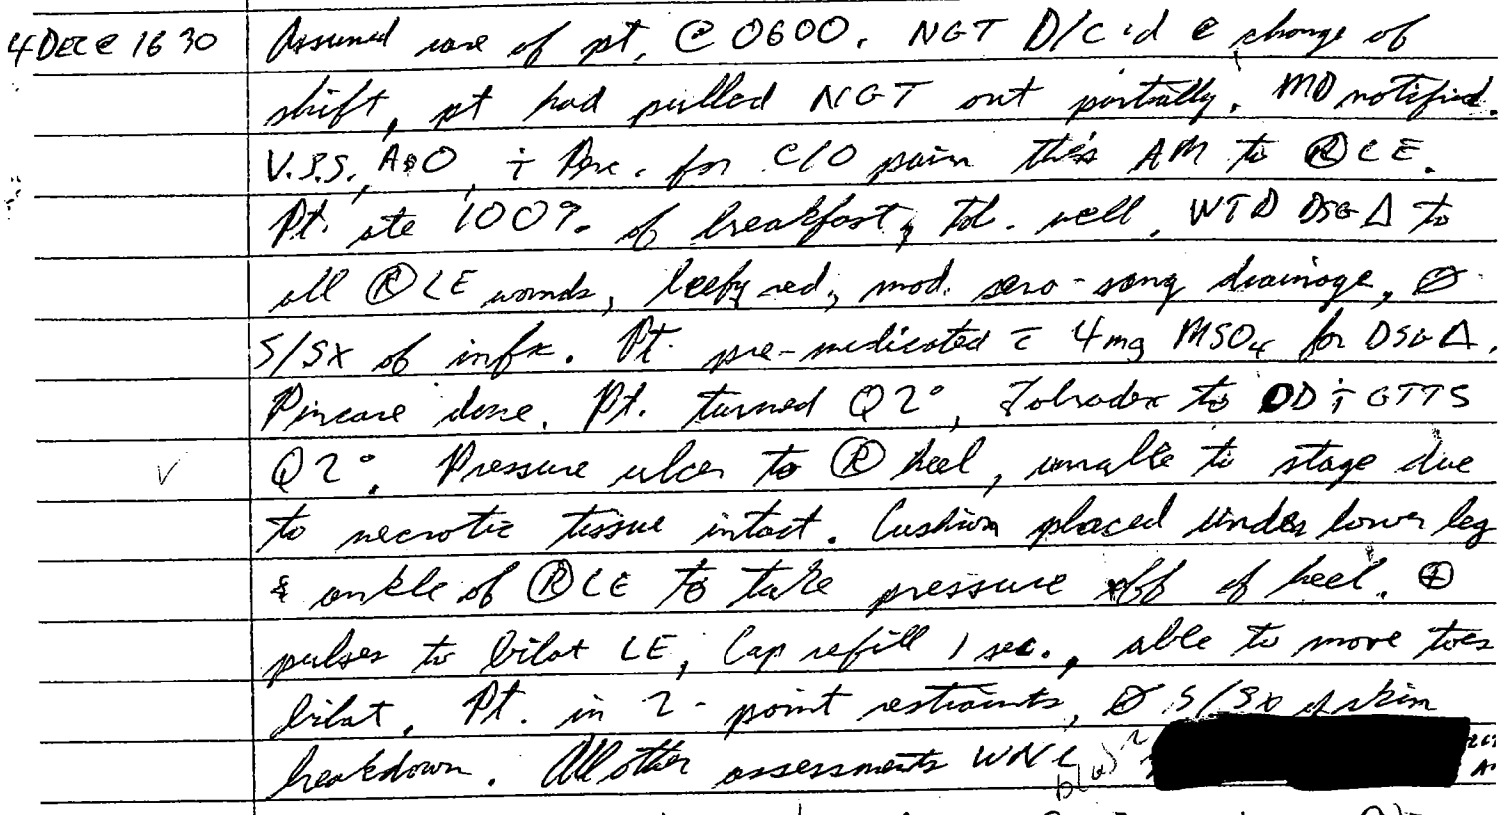 4 DEC @ 1630 Assumed care of pt. @ 0600. NGT D/C'd @ change of
shift, pt had pulled NGT out partially. MD notified.
V.S.S., A&O, ṫ Perc. for C/O pain this AM to Ⓡ LE.
Pt. ate 100% of breakfast, tol. well. WTD DSG Δ to
all Ⓡ LE wounds, beefy red, mod. sero-sang drainage, Ø
S/SX of infx. Pt. pre-medicated c̄ 4mg MSO4 for DSG Δ.
Pincare done. Pt. turned Q2°, Tobradex to OD ṫ GTTS
Q2°. Pressure ulcer to Ⓡ heel, unable to stage due
to necrotic tissue intact. Cushion placed under lower leg
& ankle of Ⓡ LE to take pressure off of heel. ⊕
pulses to bilat LE, Cap refill 1 sec., able to move toes
bilat. Pt. in 2-point restraints, Ø S/Sx of skin
breakdown. All other assessments WNL
b(6) 2